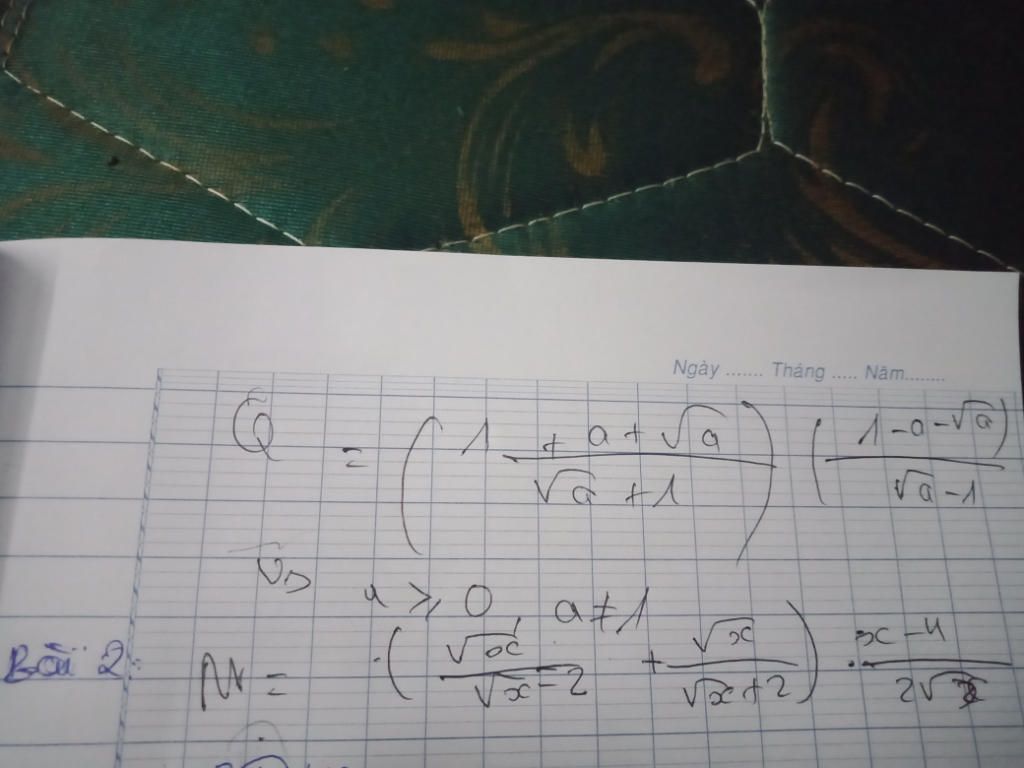 Ngày ....... Tháng ..... Năm........
Q = ( 1 + a + √a / √a + 1 ) ( 1 - a - √a / √a - 1 )
a ≥ 0, a ≠ 1
Bài 2: M = ( √x / √x - 2 + √x / √x + 2 ) . x - 4 / 2√x